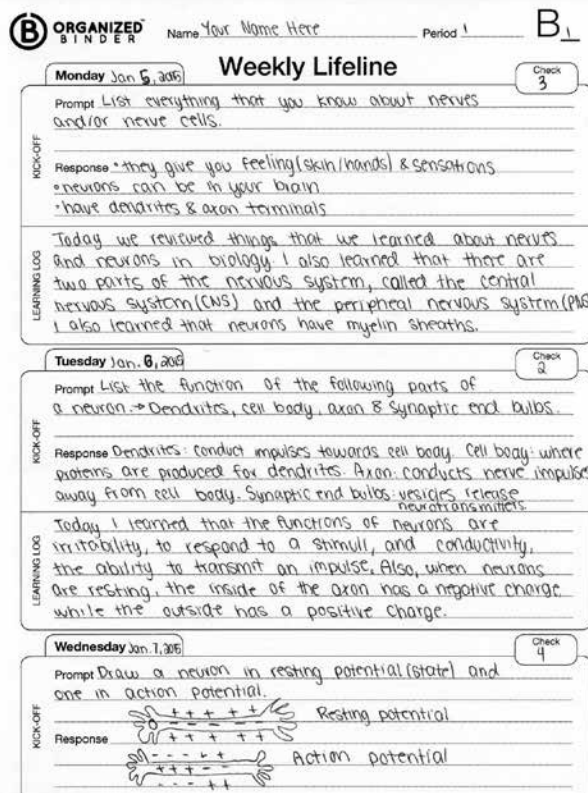 B ORGANIZED BINDER
Name Your Name Here
Period 1
B1
Weekly Lifeline
Monday Jan 5, 2015
Check
3
KICK-OFF
Prompt List everything that you know about nerves
and/or nerve cells.
Response • they give you feeling (skin/hands) & sensations
• neurons can be in your brain
• have dendrites & axon terminals
LEARNING LOG
Today we reviewed things that we learned about nerves
and neurons in biology. I also learned that there are
two parts of the nervous system, called the central
nervous system (CNS) and the peripheral nervous system (PNS)
I also learned that neurons have myelin sheaths.
Tuesday Jan. 6, 2015
Check
2
KICK-OFF
Prompt List the function of the following parts of
a neuron. → Dendrites, cell body, axon & synaptic end bulbs.
Response Dendrites: conduct impulses towards cell body. Cell body: where
proteins are produced for dendrites. Axon: conducts nerve impulses
away from cell body. Synaptic end bulbs: vesicles release
neurotransmitters.
LEARNING LOG
Today I learned that the functions of neurons are
irritability, to respond to a stimuli, and conductivity,
the ability to transmit an impulse. Also, when neurons
are resting, the inside of the axon has a negative charge
while the outside has a positive charge.
Wednesday Jan. 7, 2015
Check
4
KICK-OFF
Prompt Draw a neuron in resting potential (state) and
one in action potential.
Response
+ + + + +
Resting potential
- - - -
+ + + + +
- - - + +
Action potential
+ + + - -
- - - + +